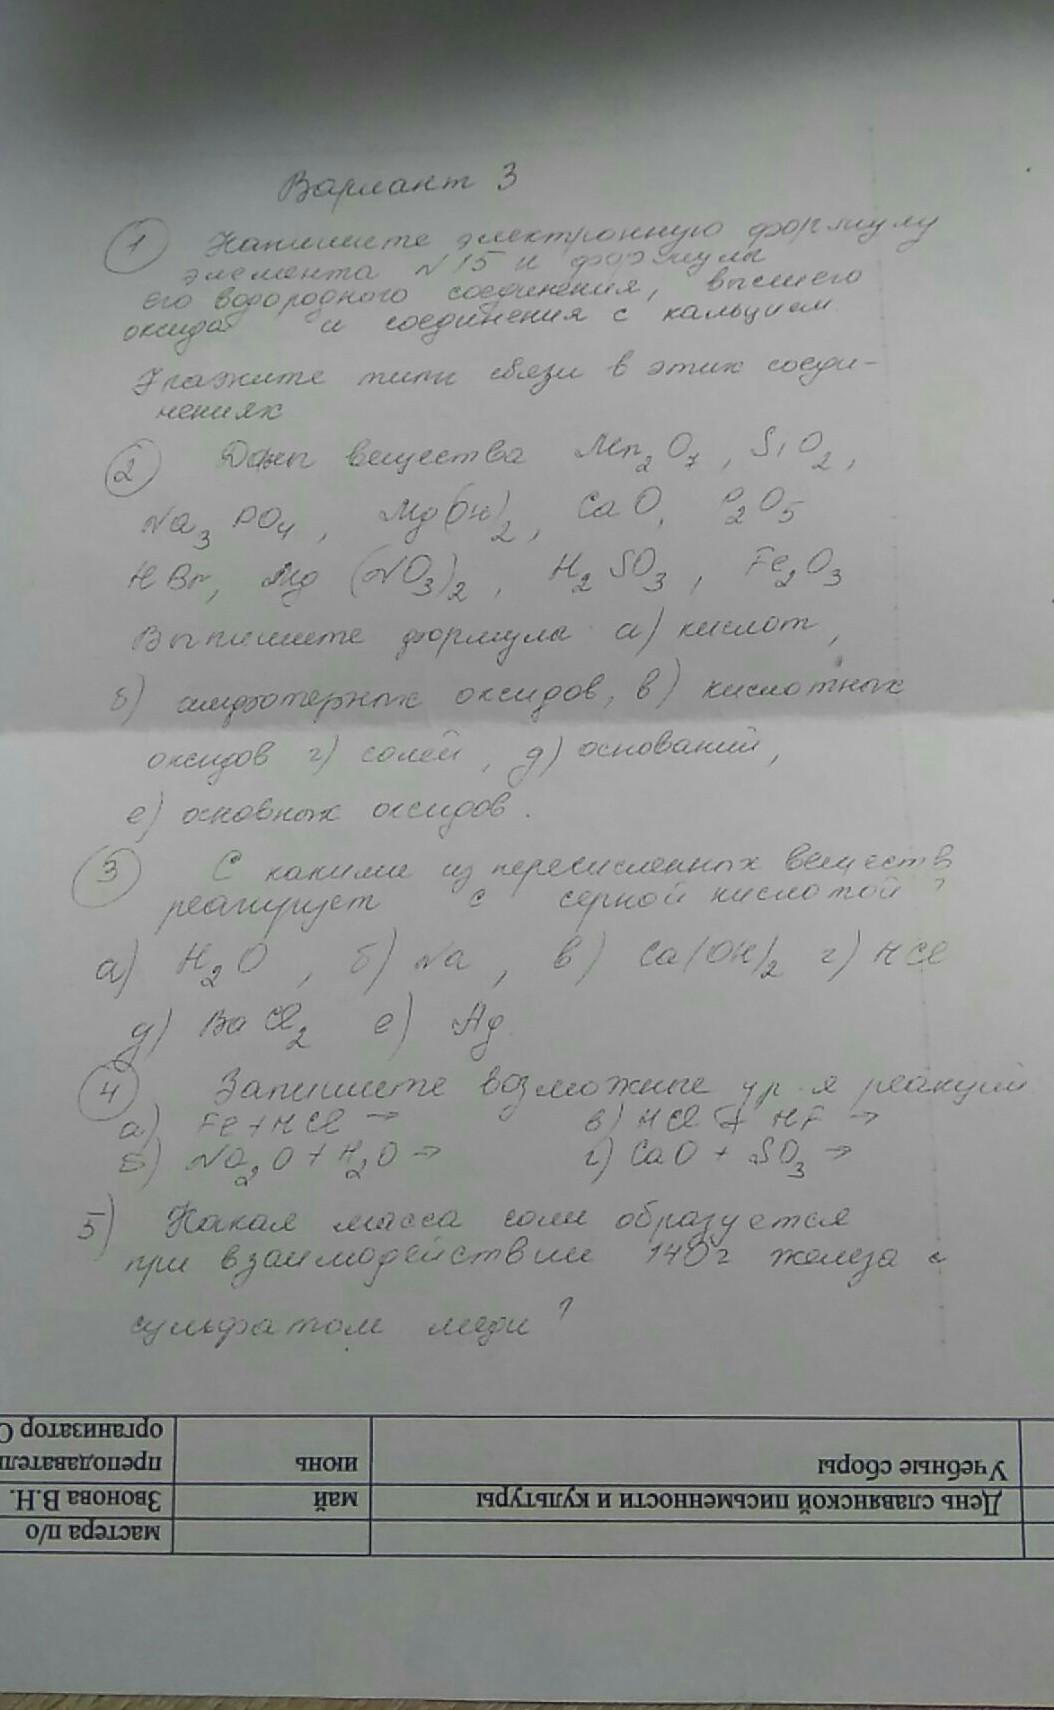 Вариант 3
1 Напишите электронную формулу
элемента №15 и формулы
его водородного соединения, высшего
оксида и соединения с кальцием
Укажите типы связи в этих соеди-
нениях
2 Даны вещества Mn2O7, SiO2,
Na3PO4, Mg(OH)2, CaO, P2O5
HBr, Mg(NO3)2, H2SO3, Fe2O3
Выпишите формулы а) кислот,
б) амфотерных оксидов, в) кислотных
оксидов г) солей, д) оснований,
е) основных оксидов.
3 С какими из перечисленных веществ
реагирует с серной кислотой?
а) H2O, б) Na, в) Ca(OH)2 г) HCl
д) BaCl2 е) Ag
4 Запишите возможные ур-я реакций
а) Fe+HCl → в) HCl + HF →
б) Na2O+H2O → г) CaO + SO3 →
5) Какая масса соли образуется
при взаимодействии 140г железа с
сульфатом меди?
Учебные сборы июнь преподаватель
организатор О
День славянской письменности и культуры май Звонова В.Н.
мастера п/о